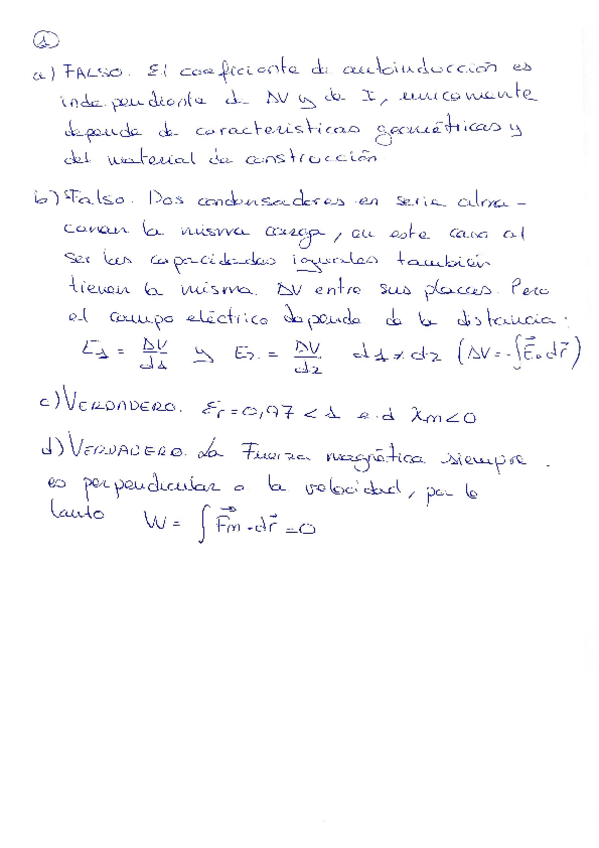 1
a) FALSO. El coeficiente de autoinducción es
independiente de ΔV y de I, unicamente
depende de caracteristicas geométricas y
del material de construcción
b) Falso. Dos condensadores en serie alma-
cenan la misma carga, en este caso al
ser las capacidades iguales también
tienen la misma ΔV entre sus placas. Pero
el campo eléctrico depende de la distancia:
E₁ = ΔV/d1 y E₂ = ΔV/d2 d1 ≠ d2 (ΔV = -∫E⃗ · dr⃗)
c) VERDADERO. εr = 0,97 < 1 e.d χm < 0
d) VERDADERO. La Fuerza magnética siempre
es perpendicular a la velocidad, por lo
tanto W = ∫F⃗m · dr⃗ = 0